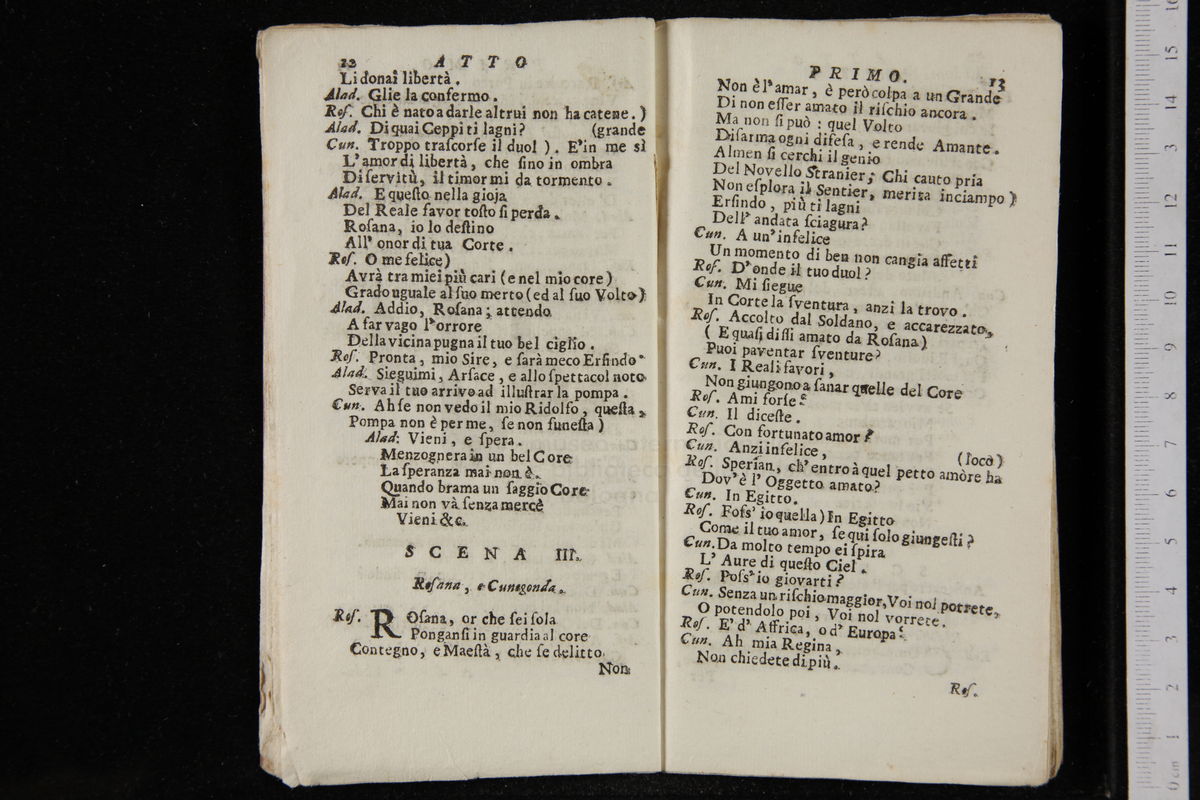 12 ATTO
Li donai libertà.
Alad. Glie la confermo.
Roſ. Chi è nato a darle altrui non ha catene.)
Alad. Di quai Ceppi ti lagni? (grande
Cun. Troppo traſcorſe il duol ). E'in me sì
L'amor di libertà, che ſino in ombra
Di ſervitù, il timor mi da tormento.
Alad. E queſto nella gioja
Del Reale favor toſto ſi perda.
Roſana, io lo deſtino
All' onor di tua Corte.
Roſ. O me felice)
Avrà tra miei più cari (e nel mio core)
Grado uguale al ſuo merto (ed al ſuo Volto)
Alad. Addio, Roſana; attendo
A far vago l'orrore
Della vicina pugna il tuo bel ciglio.
Roſ. Pronta, mio Sire, e ſarà meco Erſindo.
Alad. Sieguimi, Arſace, e allo ſpettacol noto
Serva il tuo arrivo ad illuſtrar la pompa.
Cun. Ah ſe non vedo il mio Ridolfo, queſta,
Pompa non è per me, ſe non funeſta)
Alad: Vieni, e ſpera.
Menzognera in un bel Core
La ſperanza mai non è.
Quando brama un ſaggio Core
Mai non và ſenza mercè
Vieni &c.
SCENA III.
Roſana, e Cunegonda.
Roſ. ROſana, or che ſei ſola
Ponganſi in guardia al core
Contegno, e Maeſtà, che ſe delitto
Non
PRIMO. 13
Non è l'amar, è però colpa a un Grande
Di non eſſer amato il riſchio ancora.
Ma non ſi può: quel Volto
Diſarma ogni difeſa, e rende Amante.
Almen ſi cerchi il genio
Del Novello Stranier; Chi cauto pria
Non eſplora il Sentier, merita inciampo)
Erſindo, più ti lagni
Dell' andata ſciagura?
Cun. A un'infelice
Un momento di ben non cangia affetti
Roſ. D'onde il tuo duol?
Cun. Mi ſiegue
In Corte la ſventura, anzi la trovo.
Roſ. Accolto dal Soldano, e accarezzato,
( E quaſi diſſi amato da Roſana)
Puoi paventar ſventure?
Cun. I Reali favori,
Non giungono a ſanar quelle del Core
Roſ. Ami forſe?
Cun. Il diceſte.
Roſ. Con fortunato amor?
Cun. Anzi infelice, (loco)
Roſ. Sperian, ch'entro à quel petto amòre ha
Dov'è l'Oggetto amato?
Cun. In Egitto.
Roſ. Foſs' io quella) In Egitto
Come il tuo amor, ſe qui ſolo giungeſti?
Cun. Da molto tempo ei ſpira
L' Aure di queſto Ciel.
Roſ. Poſs'io giovarti?
Cun. Senza un riſchio maggior, Voi nol potrete,
O potendolo poi, Voi nol vorrete.
Roſ. E' d' Affrica, o d' Europa?
Cun. Ah mia Regina,
Non chiedete di più.
Roſ.